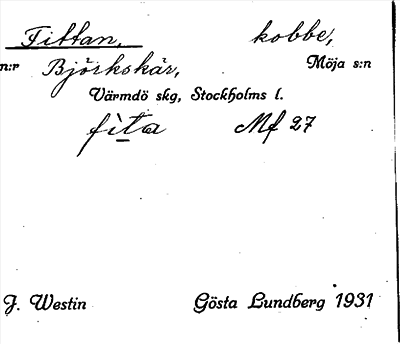 Tittan, kobbe,
n:r Björkskär, Möja s:n
Värmdö skg, Stockholms l.
fìta Mf 27
J. Westin Gösta Lundberg 1931